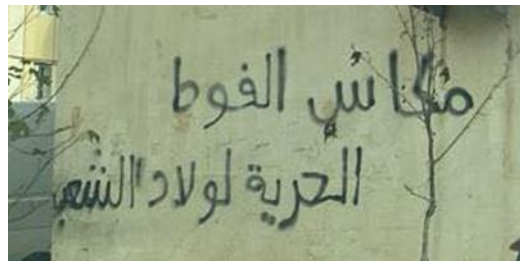 مكاش الفوط
الحرية لولاد الشعب